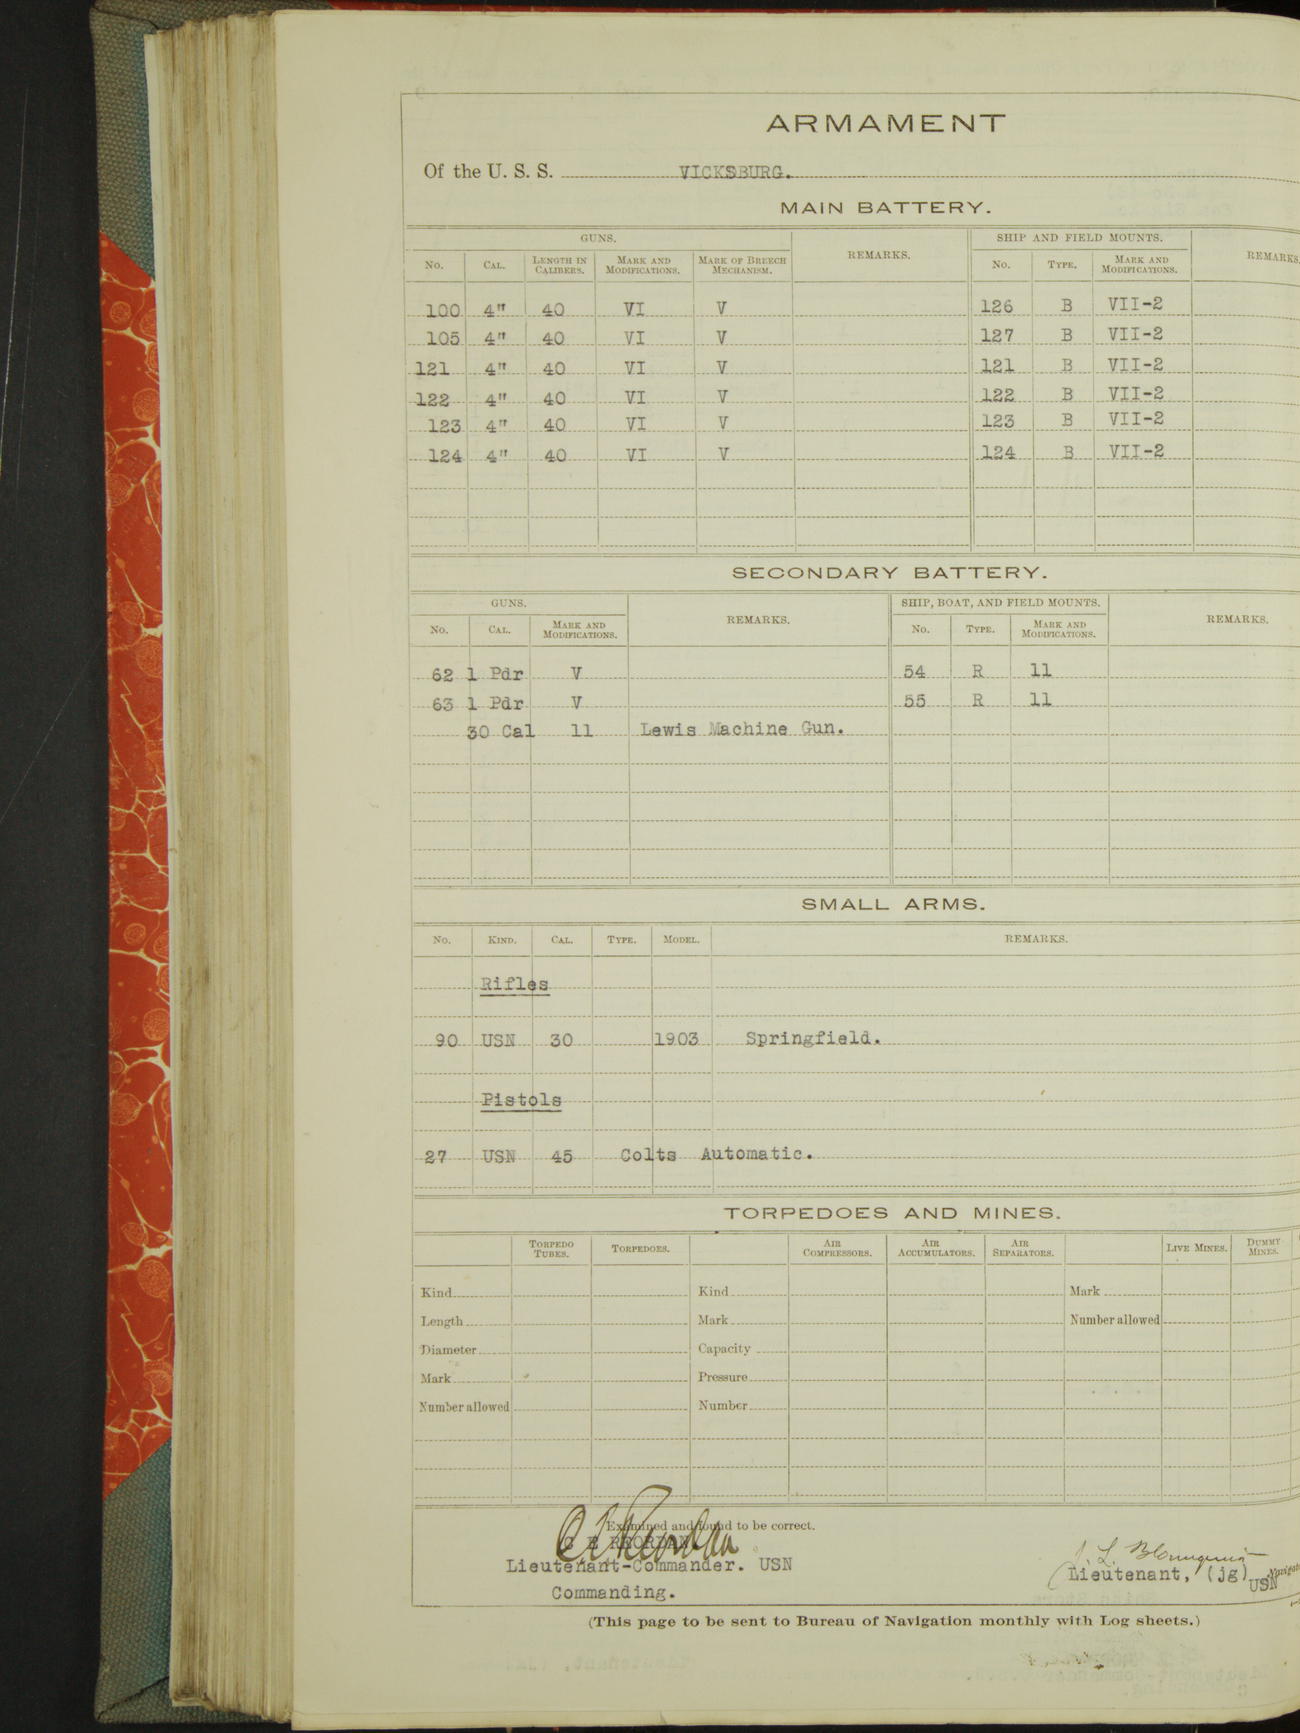 ARMAMENT
Of the U. S. S. VICKSBURG.
MAIN BATTERY.
GUNS. REMARKS. SHIP AND FIELD MOUNTS. REMARKS.
No. CAL. LENGTH IN CALIBERS. MARK AND MODIFICATIONS. MARK OF BREECH MECHANISM. No. TYPE. MARK AND MODIFICATIONS.
100 4" 40 VI V 126 B VII-2
105 4" 40 VI V 127 B VII-2
121 4" 40 VI V 121 B VII-2
122 4" 40 VI V 122 B VII-2
123 4" 40 VI V 123 B VII-2
124 4" 40 VI V 124 B VII-2
SECONDARY BATTERY.
GUNS. REMARKS. SHIP, BOAT, AND FIELD MOUNTS. REMARKS.
No. CAL. MARK AND MODIFICATIONS. No. TYPE. MARK AND MODIFICATIONS.
62 1 Pdr V 54 R 11
63 1 Pdr V 55 R 11
30 Cal 11 Lewis Machine Gun.
SMALL ARMS.
No. KIND. CAL. TYPE. MODEL. REMARKS.
Rifles
90 USN 30 1903 Springfield.
Pistols
27 USN 45 Colts Automatic.
TORPEDOES AND MINES.
TORPEDO TUBES. TORPEDOES. AIR COMPRESSORS. AIR ACCUMULATORS. AIR SEPARATORS. LIVE MINES. DUMMY MINES.
Kind Kind Mark
Length Mark Number allowed
Diameter Capacity
Mark Pressure
Number allowed Number
Examined and found to be correct.
C E REORDAN
Lieutenant-Commander. USN Lieutenant, (jg) USN
Commanding.
(This page to be sent to Bureau of Navigation monthly with Log sheets.)